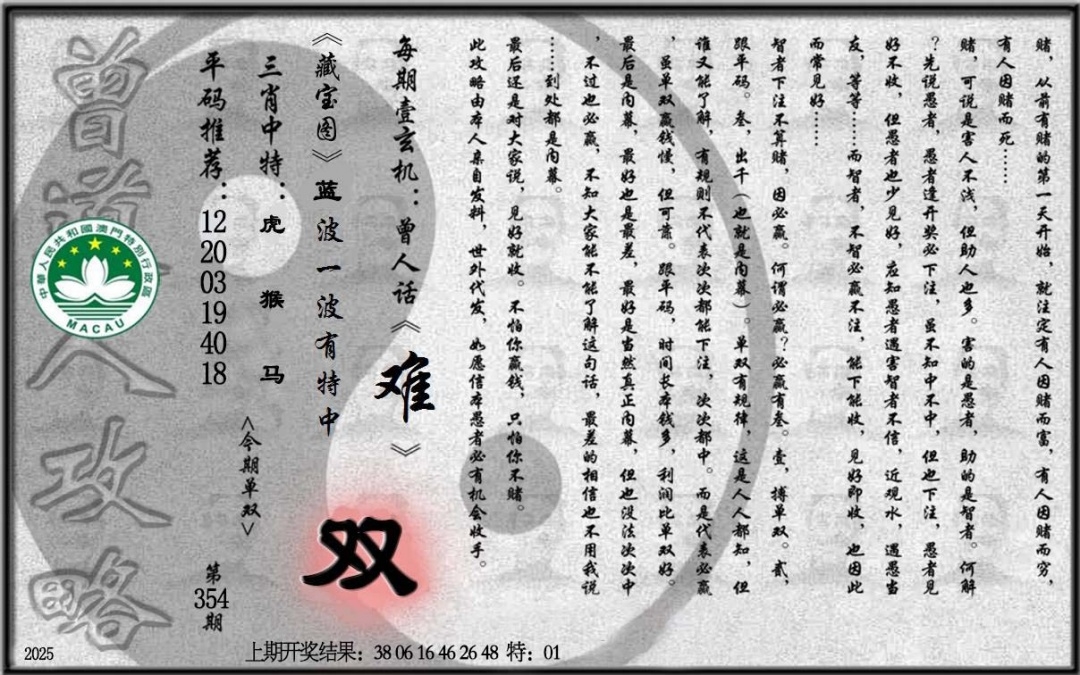 赌，从前有赌的第一天开始，就注定有人因赌而富，有人因赌而穷，
有人因赌而死……
赌，可说是害人不浅，但助人也多。害的是愚者，助的是智者。何解
？先说愚者，愚者逢开奖必下注，虽不知中不中，但也下注，愚者见
好不收，但愚者也少见好，应知愚者遇害智者不信，近观水，遇愚当
友，等等……而智者，不智必赢不注，能下能收，见好即收，也因此
而常见好……
智者下注不算赌，因必赢。何谓必赢？必赢有叁。壹，搏单双。贰，
跟平码。叁，出千（也就是内幕）。单双有规律，这是人人都知，但
谁又能了解，有规则不代表次次都能下注，次次都中。而是代表必赢
，虽单双赢钱慢，但可靠。跟平码，时间长本钱多，利润比单双好。
最后是内幕，最好也是最差，最好是当然真正内幕，但也没法次次中
，不过也必赢，不知大家能不能了解这句话，最差的相信也不用我说
……到处都是内幕。
最后还是对大家说，见好就收。不怕你赢钱，只怕你不赌。
此攻略由本人亲自发料，世外代发，如愿信本愚者必有机会收手。
每期壹玄机：曾人话《难》
《藏宝图》蓝波一波有特中
双
三肖中特：虎 猴 马
<今期单双>
平码推荐：12 20 03 19 40 18
第354期
曾道人攻略
中華人民共和國澳門特別行政區
MACAU
2025
上期开奖结果：38 06 16 46 26 48 特：01